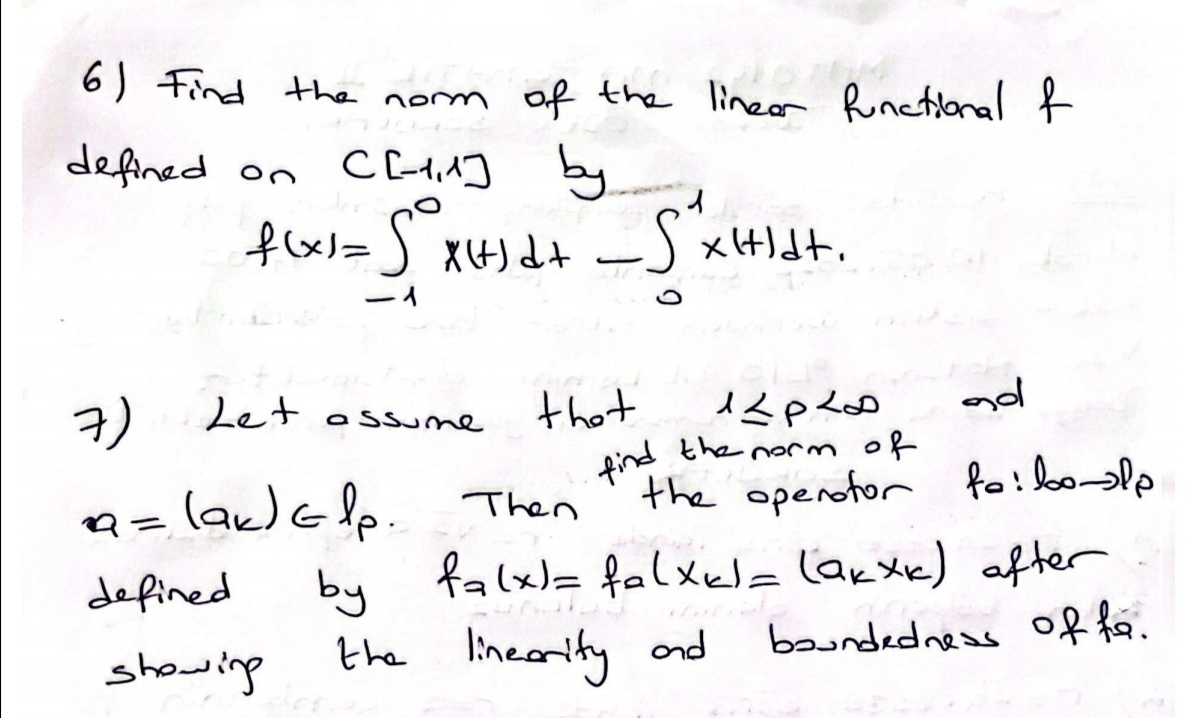 6) Find the norm of the linear functional f
defined on C[-1,1] by
f(x)=∫₋₁⁰ x(t)dt - ∫₀¹ x(t)dt.
7) Let assume that 1≤p<∞ and
find the norm of
a = (aₖ) ∈ lₚ. Then the operator fa: l∞→lp
defined by fa(x)= fa(xₖ)= (aₖxₖ) after
showing the linearity and boundedness of fa.